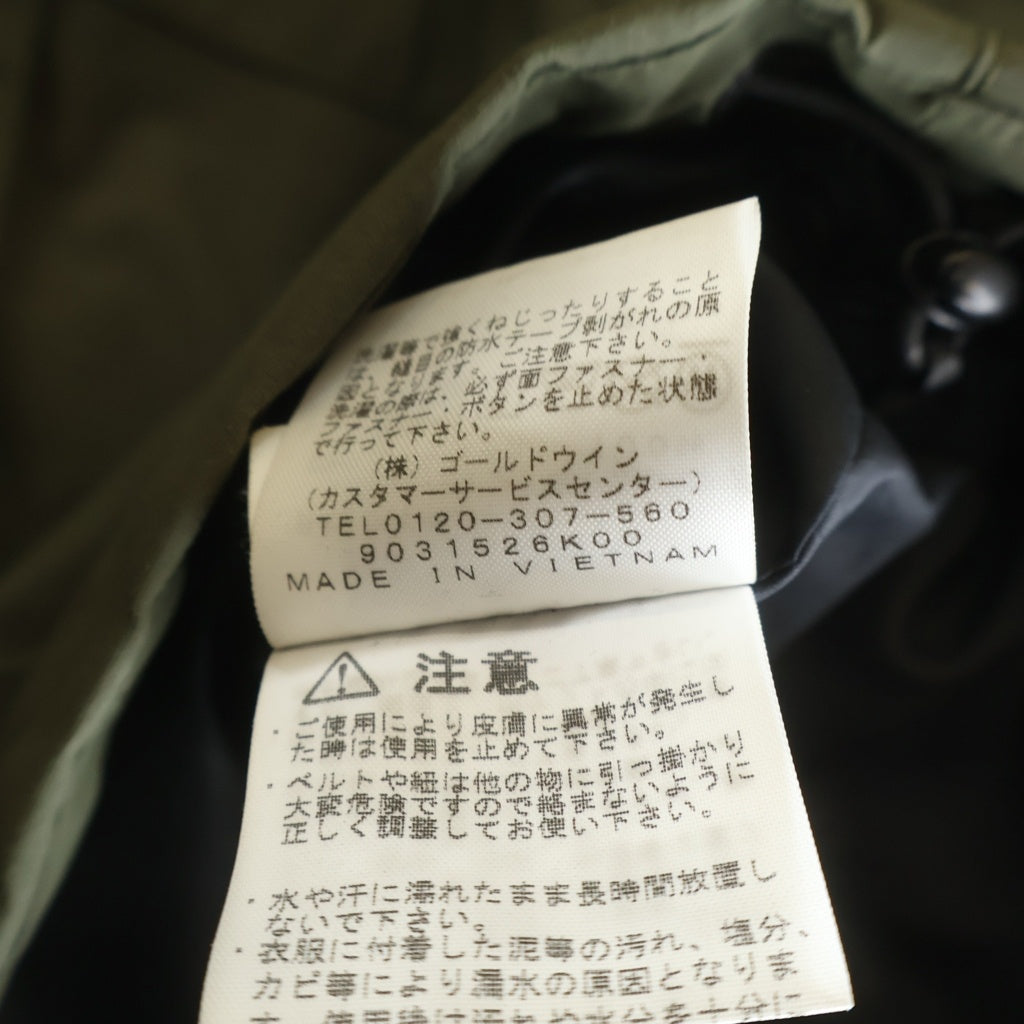 洗濯等で強くねじったりすること
は、縫目の防水テープ剥がれの原
因となります。ご注意下さい。
洗濯の際は、必ず面ファスナー・
ファスナー・ボタンを止めた状態
で行って下さい。
(株) ゴールドウイン
(カスタマーサービスセンター)
TEL0120-307-560
9031526K00
MADE IN VIETNAM
注意
・ご使用により皮膚に異常が発生し
た時は使用を止めて下さい。
・ベルトや紐は他の物に引っ掛かり
大変危険ですので絡まないように
正しく調整してお使い下さい。
・水や汗に濡れたまま長時間放置し
ないで下さい。
・衣服に付着した泥等の汚れ、塩分、
カビ等により漏水の原因となりま
す。使用後は汚れや水分を十分に